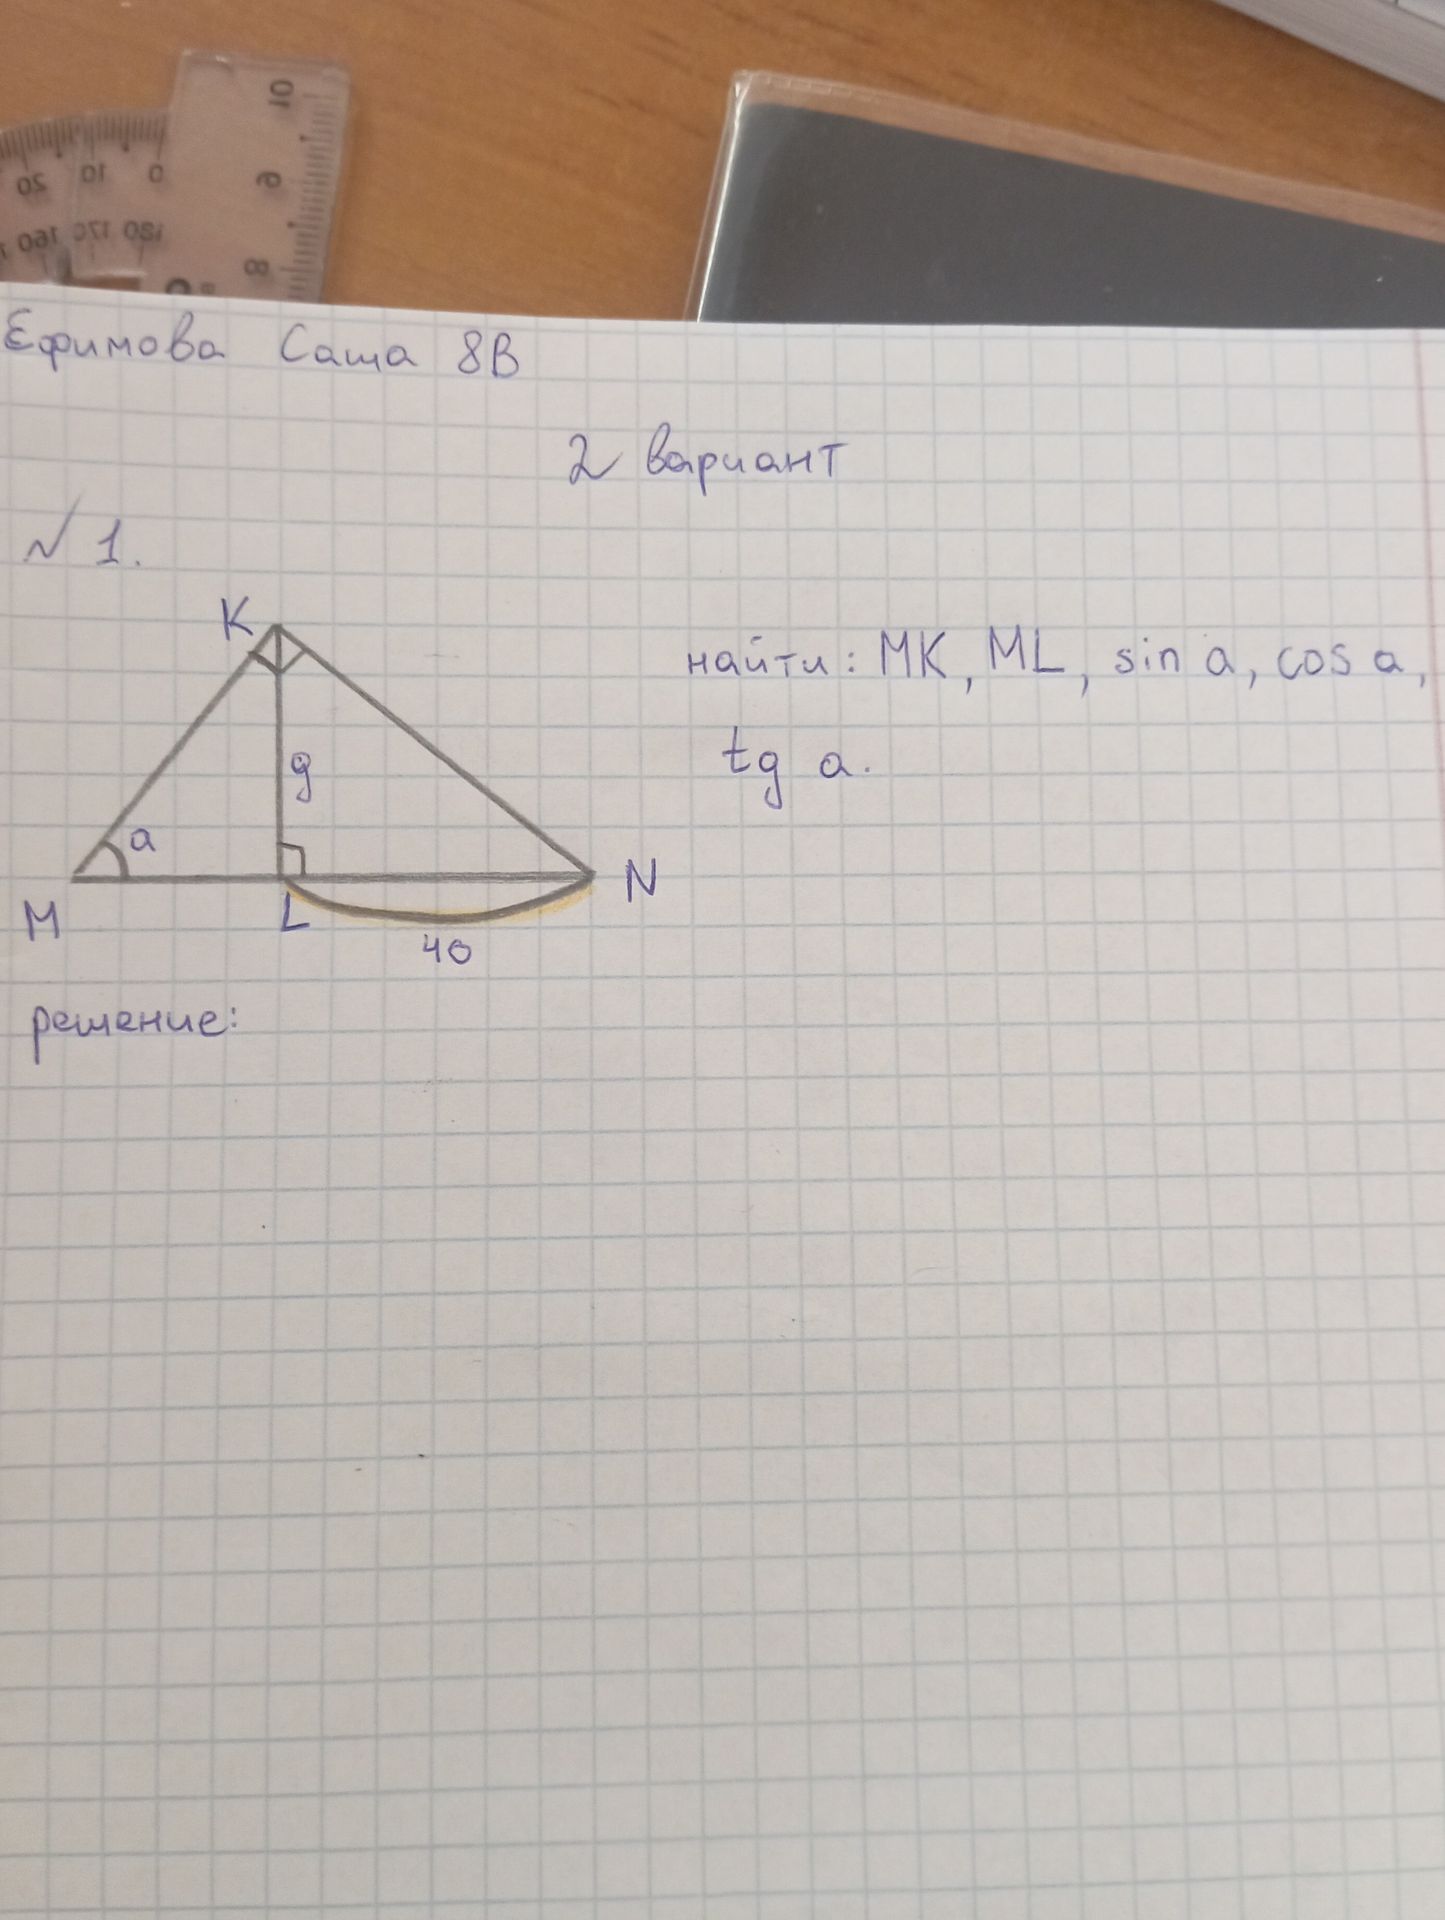 10
9
8
20 10 0
160 170 180
Ефимова Саша 8В
2 вариант
№ 1.
K
найти: MK, ML, sin a, cos a,
tg a.
9
a
M
L
N
40
решение: